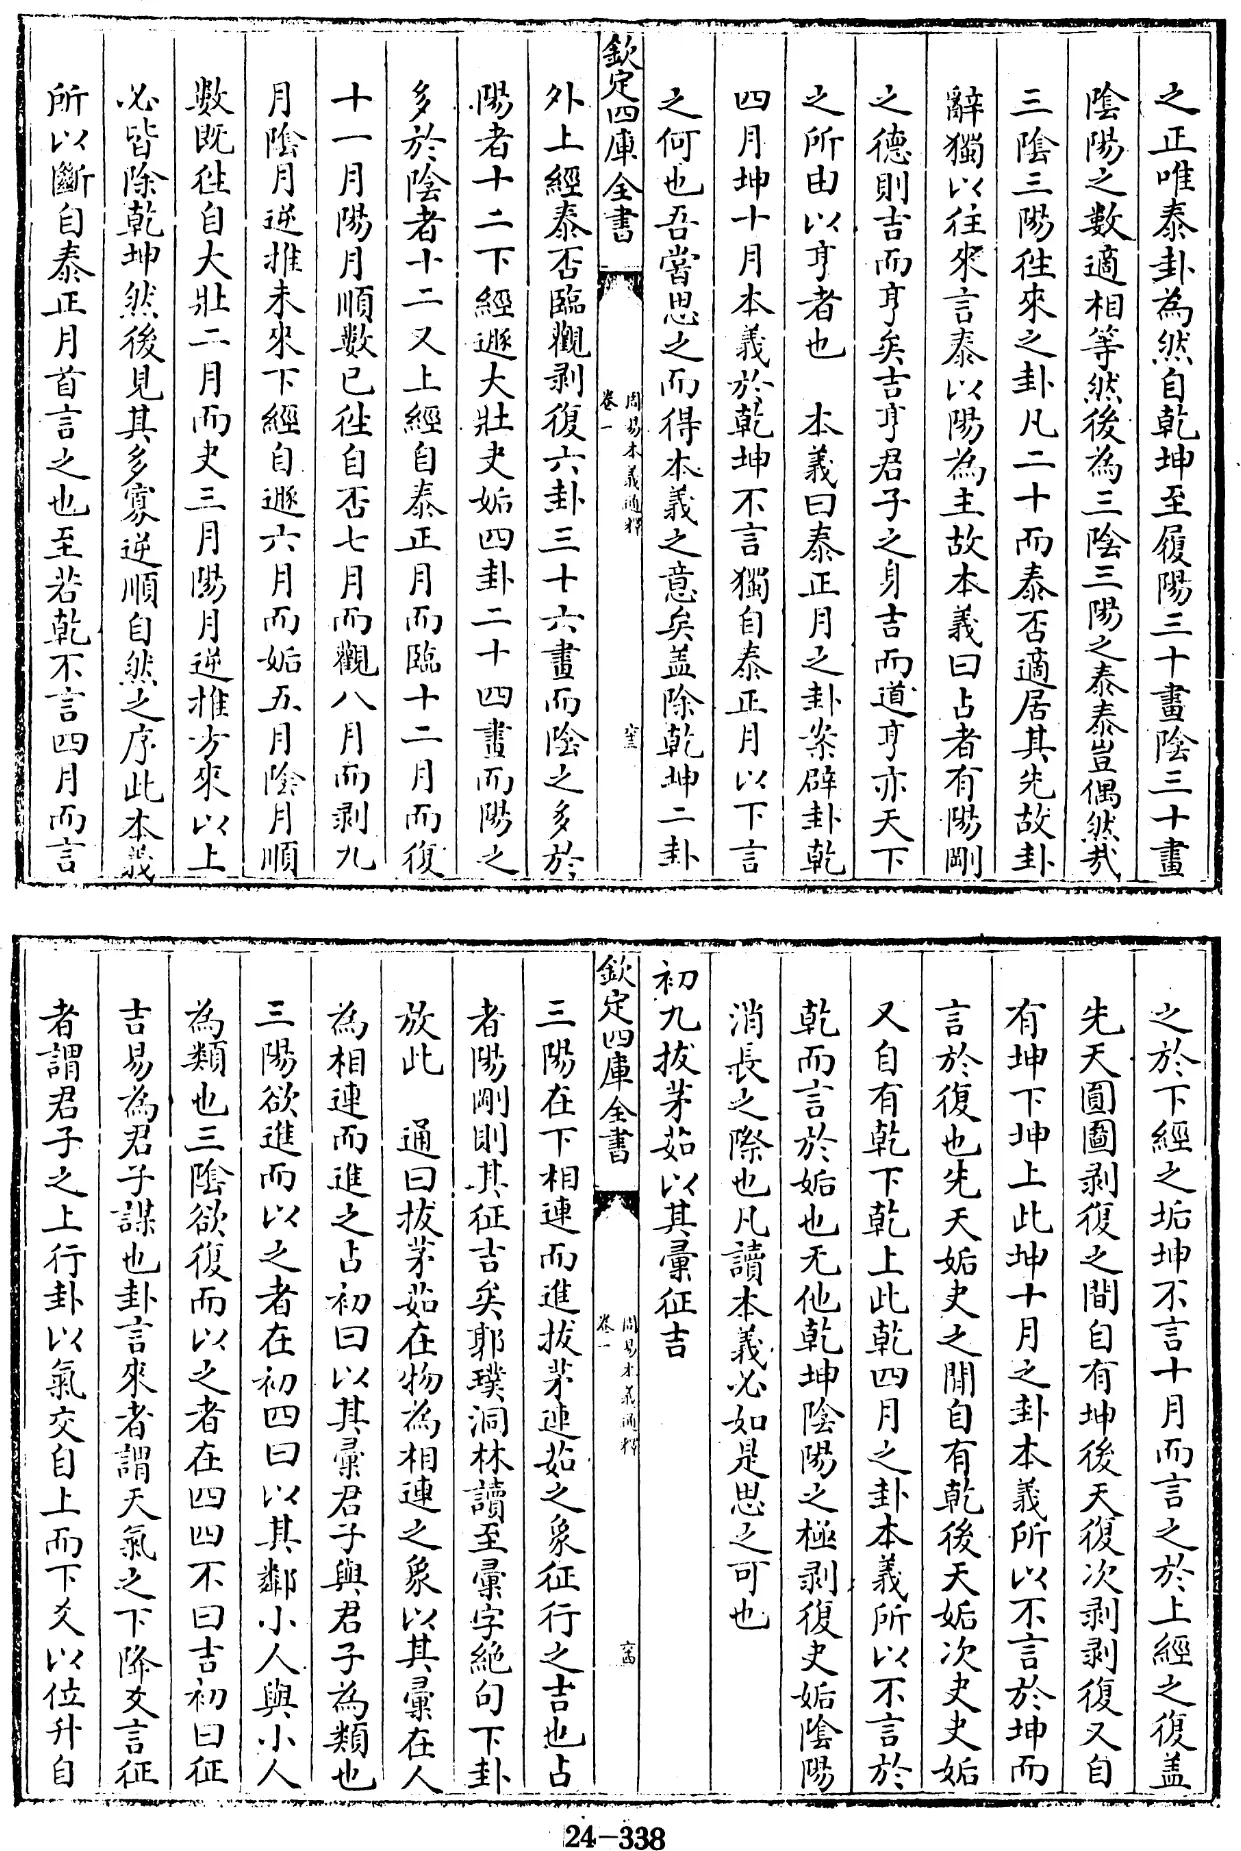 之正唯泰卦為然自乾坤至履陽三十畫陰三十畫
陰陽之數適相等然後為三陰三陽之泰泰豈偶然哉
三陰三陽徃來之卦凡二十而泰否適居其先故卦
辭獨以往來言泰以陽為主故本義曰占者有陽剛
之德則吉而亨矣吉亨君子之身吉而道亨亦天下
之所由以亨者也　本義曰泰正月之卦案辟卦乾
四月坤十月本義於乾坤不言獨自泰正月以下言
之何也吾嘗思之而得本義之意矣盖除乾坤二卦
欽定四庫全書
周易本義通釋
卷一
外上經泰否臨觀剥復六卦三十六畫而陰之多於
陽者十二下經遯大壯夬姤四卦二十四畫而陽之
多於陰者十二又上經自泰正月而臨十二月而復
十一月陽月順數已徃自否七月而觀八月而剥九
月陰月逆推未來下經自遯六月而姤五月陰月順
數既徃自大壯二月而夬三月陽月逆推方來以上
必皆除乾坤然後見其多寡逆順自然之序此本義
所以斷自泰正月首言之也至若乾不言四月而言
之於下經之垢坤不言十月而言之於上經之復盖
先天圓圖剥復之間自有坤後天復次剥剥復又自
有坤下坤上此坤十月之卦本義所以不言於坤而
言於復也先天姤夬之間自有乾後天姤次夬夬姤
又自有乾下乾上此乾四月之卦本義所以不言於
乾而言於姤也无他乾坤陰陽之極剥復夬姤陰陽
消長之際也凡讀本義必如是思之可也
初九拔茅茹以其彚征吉
欽定四庫全書
周易本義通釋
卷一
三陽在下相連而進拔茅連茹之象征行之吉也占
者陽剛則其征吉矣郭璞洞林讀至彚字絶句下卦
放此　通曰拔茅茹在物為相連之象以其彚在人
為相連而進之占初曰以其彚君子與君子為類也
三陽欲進而以之者在初四曰以其鄰小人與小人
為類也三陰欲復而以之者在四四不曰吉初曰征
吉易為君子謀也卦言來者謂天氣之下降爻言征
者謂君子之上行卦以氣交自上而下爻以位升自
24-338